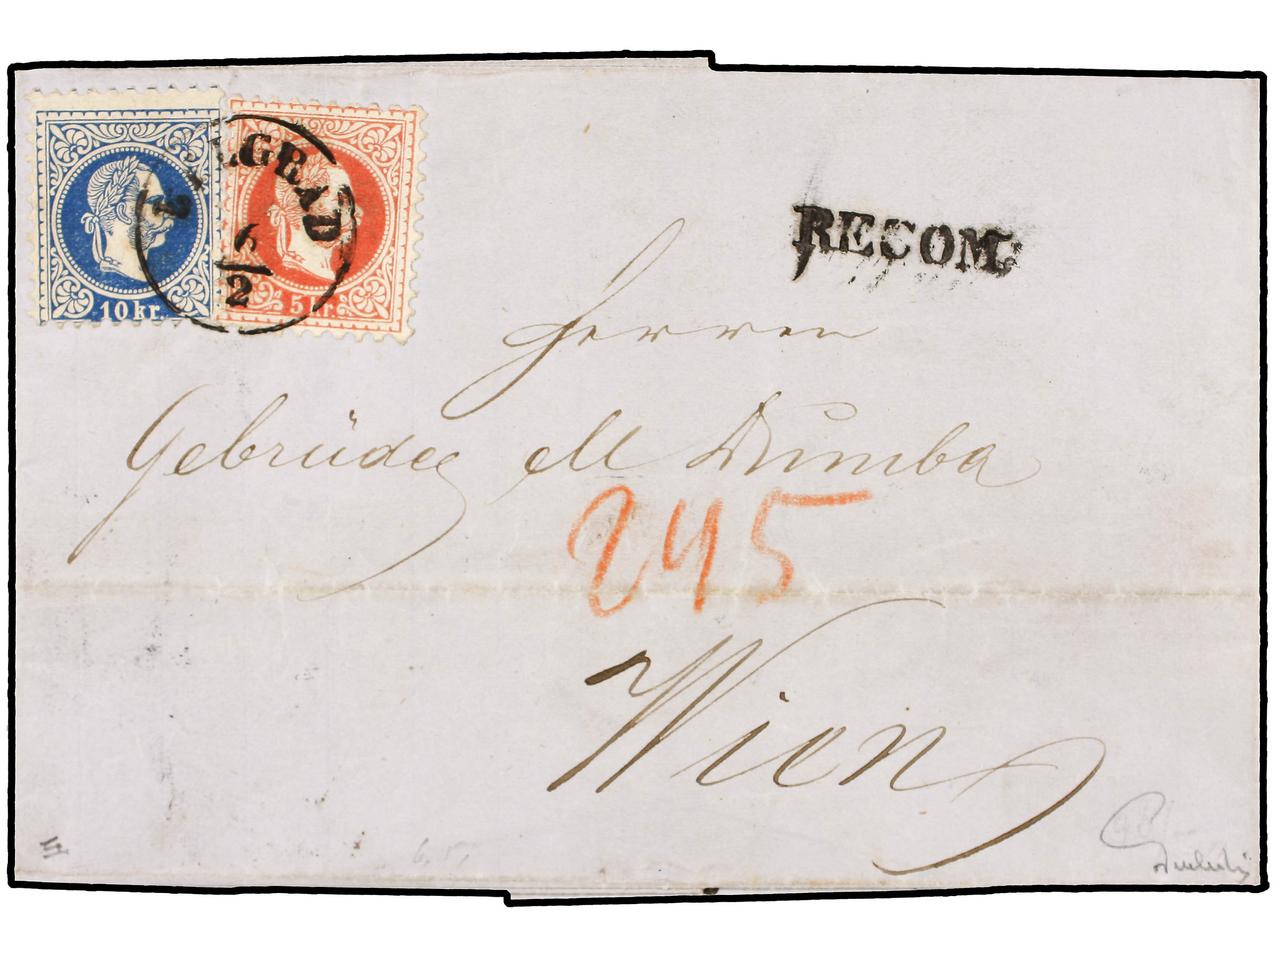 10 kr.
5 kr.
BELGRAD
6
2
RECOM.
Herren
Gebrüder M Dumba
245
Wien